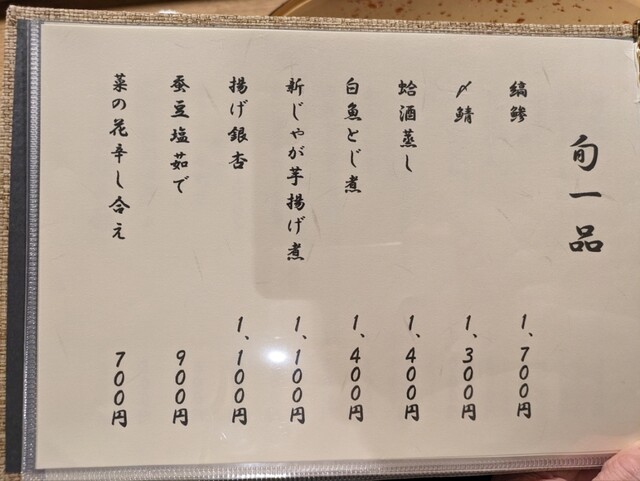 旬一品
縞鯵 1、700円
〆鯖 1、300円
蛤酒蒸し 1、400円
白魚とじ煮 1、400円
新じゃが芋揚げ煮 1、100円
揚げ銀杏 1、100円
蚕豆塩茹で 900円
菜の花辛し合え 700円